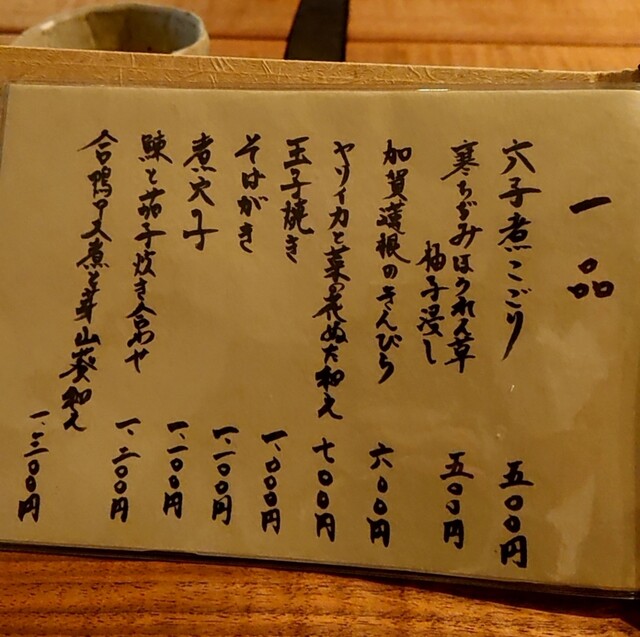 一品
穴子煮こごり 五〇〇円
寒ちぢみほうれん草
柚子浸し 五〇〇円
加賀蓮根のきんぴら 六〇〇円
ヤリイカと菜の花ぬた和え 七〇〇円
玉子焼き 一、〇〇〇円
そばがき 一、一〇〇円
煮穴子 一、二〇〇円
鰊と茄子炊き合わせ 一、二〇〇円
合鴨ロース煮と芽山葵和え 一、三〇〇円